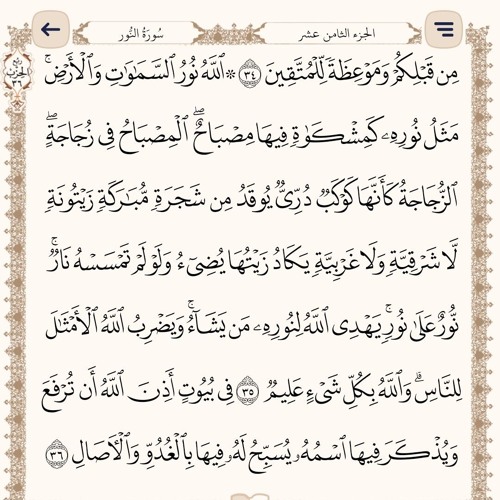 الجزء الثامن عشر
سُورَةُ النُّور
رُبع
الحزب
٣٦
مِن قَبْلِكُمْ وَمَوْعِظَةً لِّلْمُتَّقِينَ ٣٤ ۞ ٱللَّهُ نُورُ ٱلسَّمَـٰوَٰتِ وَٱلْأَرْضِۚ
مَثَلُ نُورِهِۦ كَمِشْكَوٰةٍ فِيهَا مِصْبَاحٌۖ ٱلْمِصْبَاحُ فِى زُجَاجَةٍۖ
ٱلزُّجَاجَةُ كَأَنَّهَا كَوْكَبٌ دُرِّىٌّ يُوقَدُ مِن شَجَرَةٍ مُّبَـٰرَكَةٍ زَيْتُونَةٍ
لَّا شَرْقِيَّةٍ وَلَا غَرْبِيَّةٍ يَكَادُ زَيْتُهَا يُضِىٓءُ وَلَوْ لَمْ تَمْسَسْهُ نَارٌۚ
نُّورٌ عَلَىٰ نُورٍۗ يَهْدِى ٱللَّهُ لِنُورِهِۦ مَن يَشَآءُۚ وَيَضْرِبُ ٱللَّهُ ٱلْأَمْثَـٰلَ
لِلنَّاسِۗ وَٱللَّهُ بِكُلِّ شَىْءٍ عَلِيمٌ ٣٥ فِى بُيُوتٍ أَذِنَ ٱللَّهُ أَن تُرْفَعَ
وَيُذْكَرَ فِيهَا ٱسْمُهُۥ يُسَبِّحُ لَهُۥ فِيهَا بِٱلْغُدُوِّ وَٱلْـَٔاصَالِ ٣٦